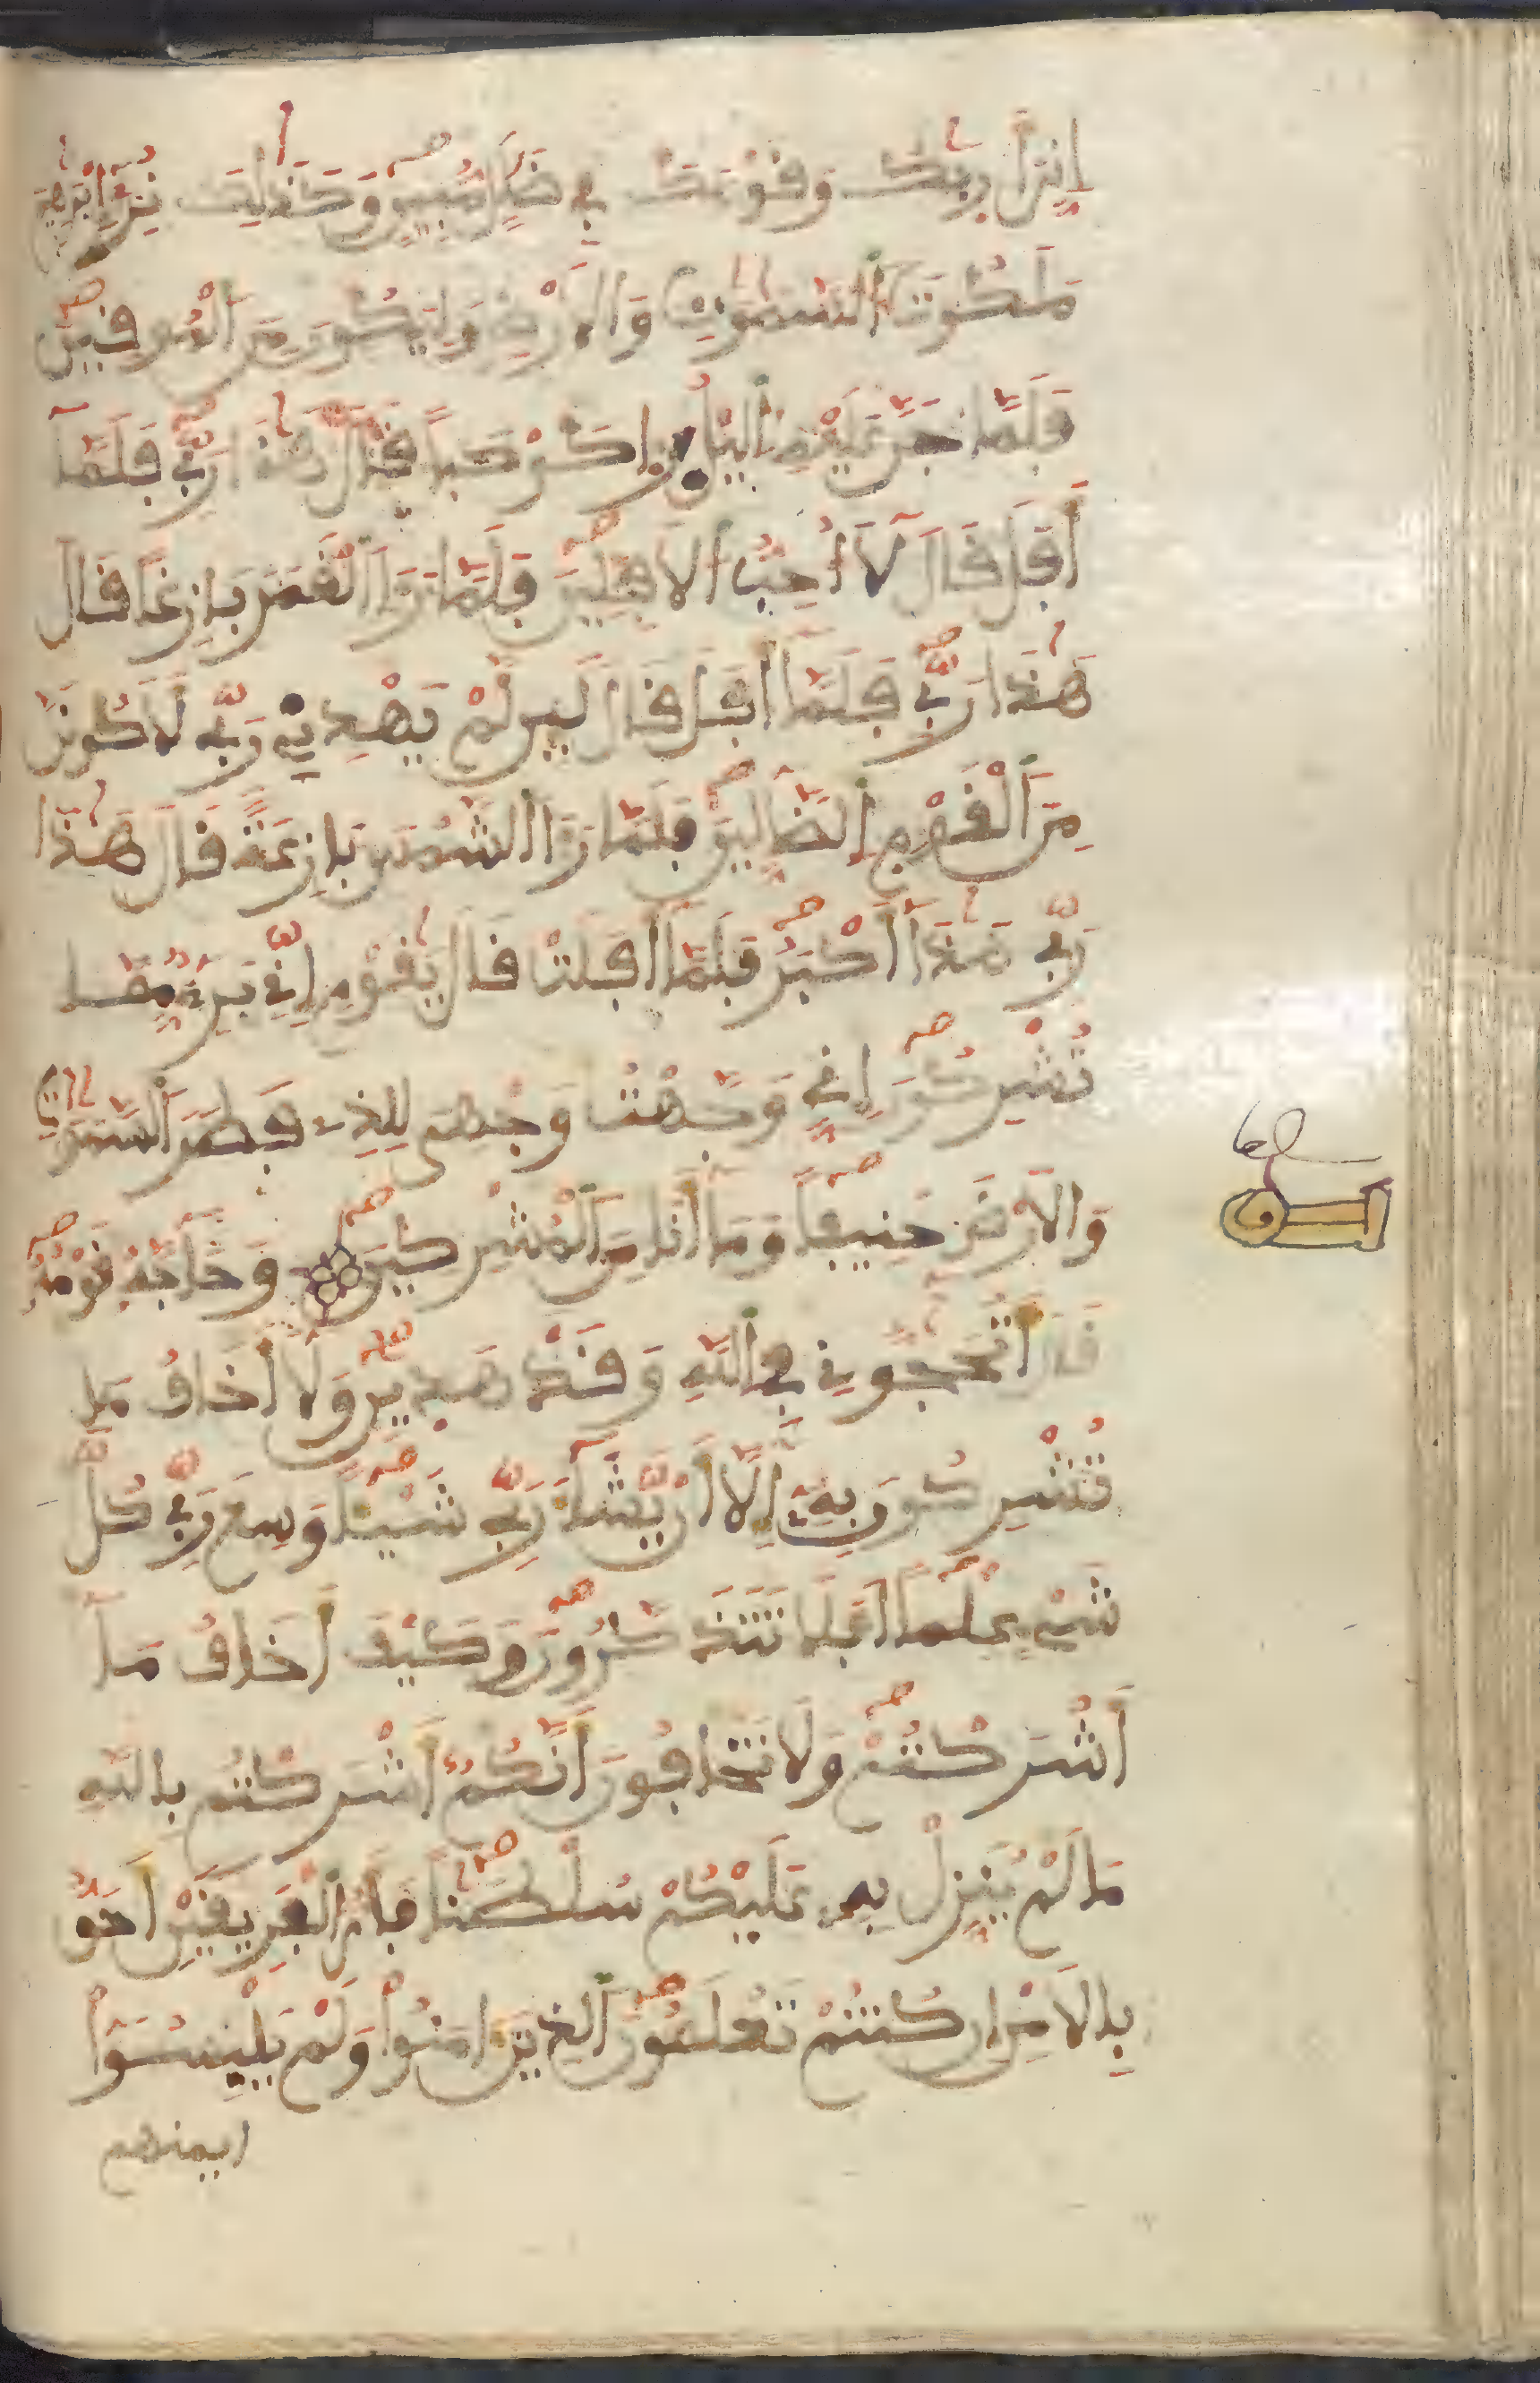 إنى أريك وقومك في ضلل مبين وكذلك نرى إبرهيم
ملكوت السموت والأرض وليكون من الموقنين
فلما جن عليه اليل رءا كوكبا قال هذا ربي فلما
أفل قال لا أحب الأفلين فلما رءا القمر بازغا قال
هذا ربي فلما أفل قال لين لم يهدني ربي لأكونن
من القوم الضالين فلما رءا الشمس بازغة قال هذا
ربي هذا أكبر فلما أفلت قال يقوم إني بريء مما
تشركون إني وجهت وجهي للذي فطر السموت
والأرض حنيفا وما أنا من المشركين وحاجه قومه
قال أتحجوني في الله وقد هدين ولا أخاف ما
تشركون به إلا أن يشاء ربي شيئا وسع ربي كل
شيء علما أفلا تتذكرون وكيف أخاف ما
أشركتم ولا تخافون أنكم أشركتم بالله
ما لم ينزل به عليكم سلطنا فأي الفريقين أحق
بالأمن إن كنتم تعلمون الذين ءامنوا ولم يلبسوا
ايمنهم